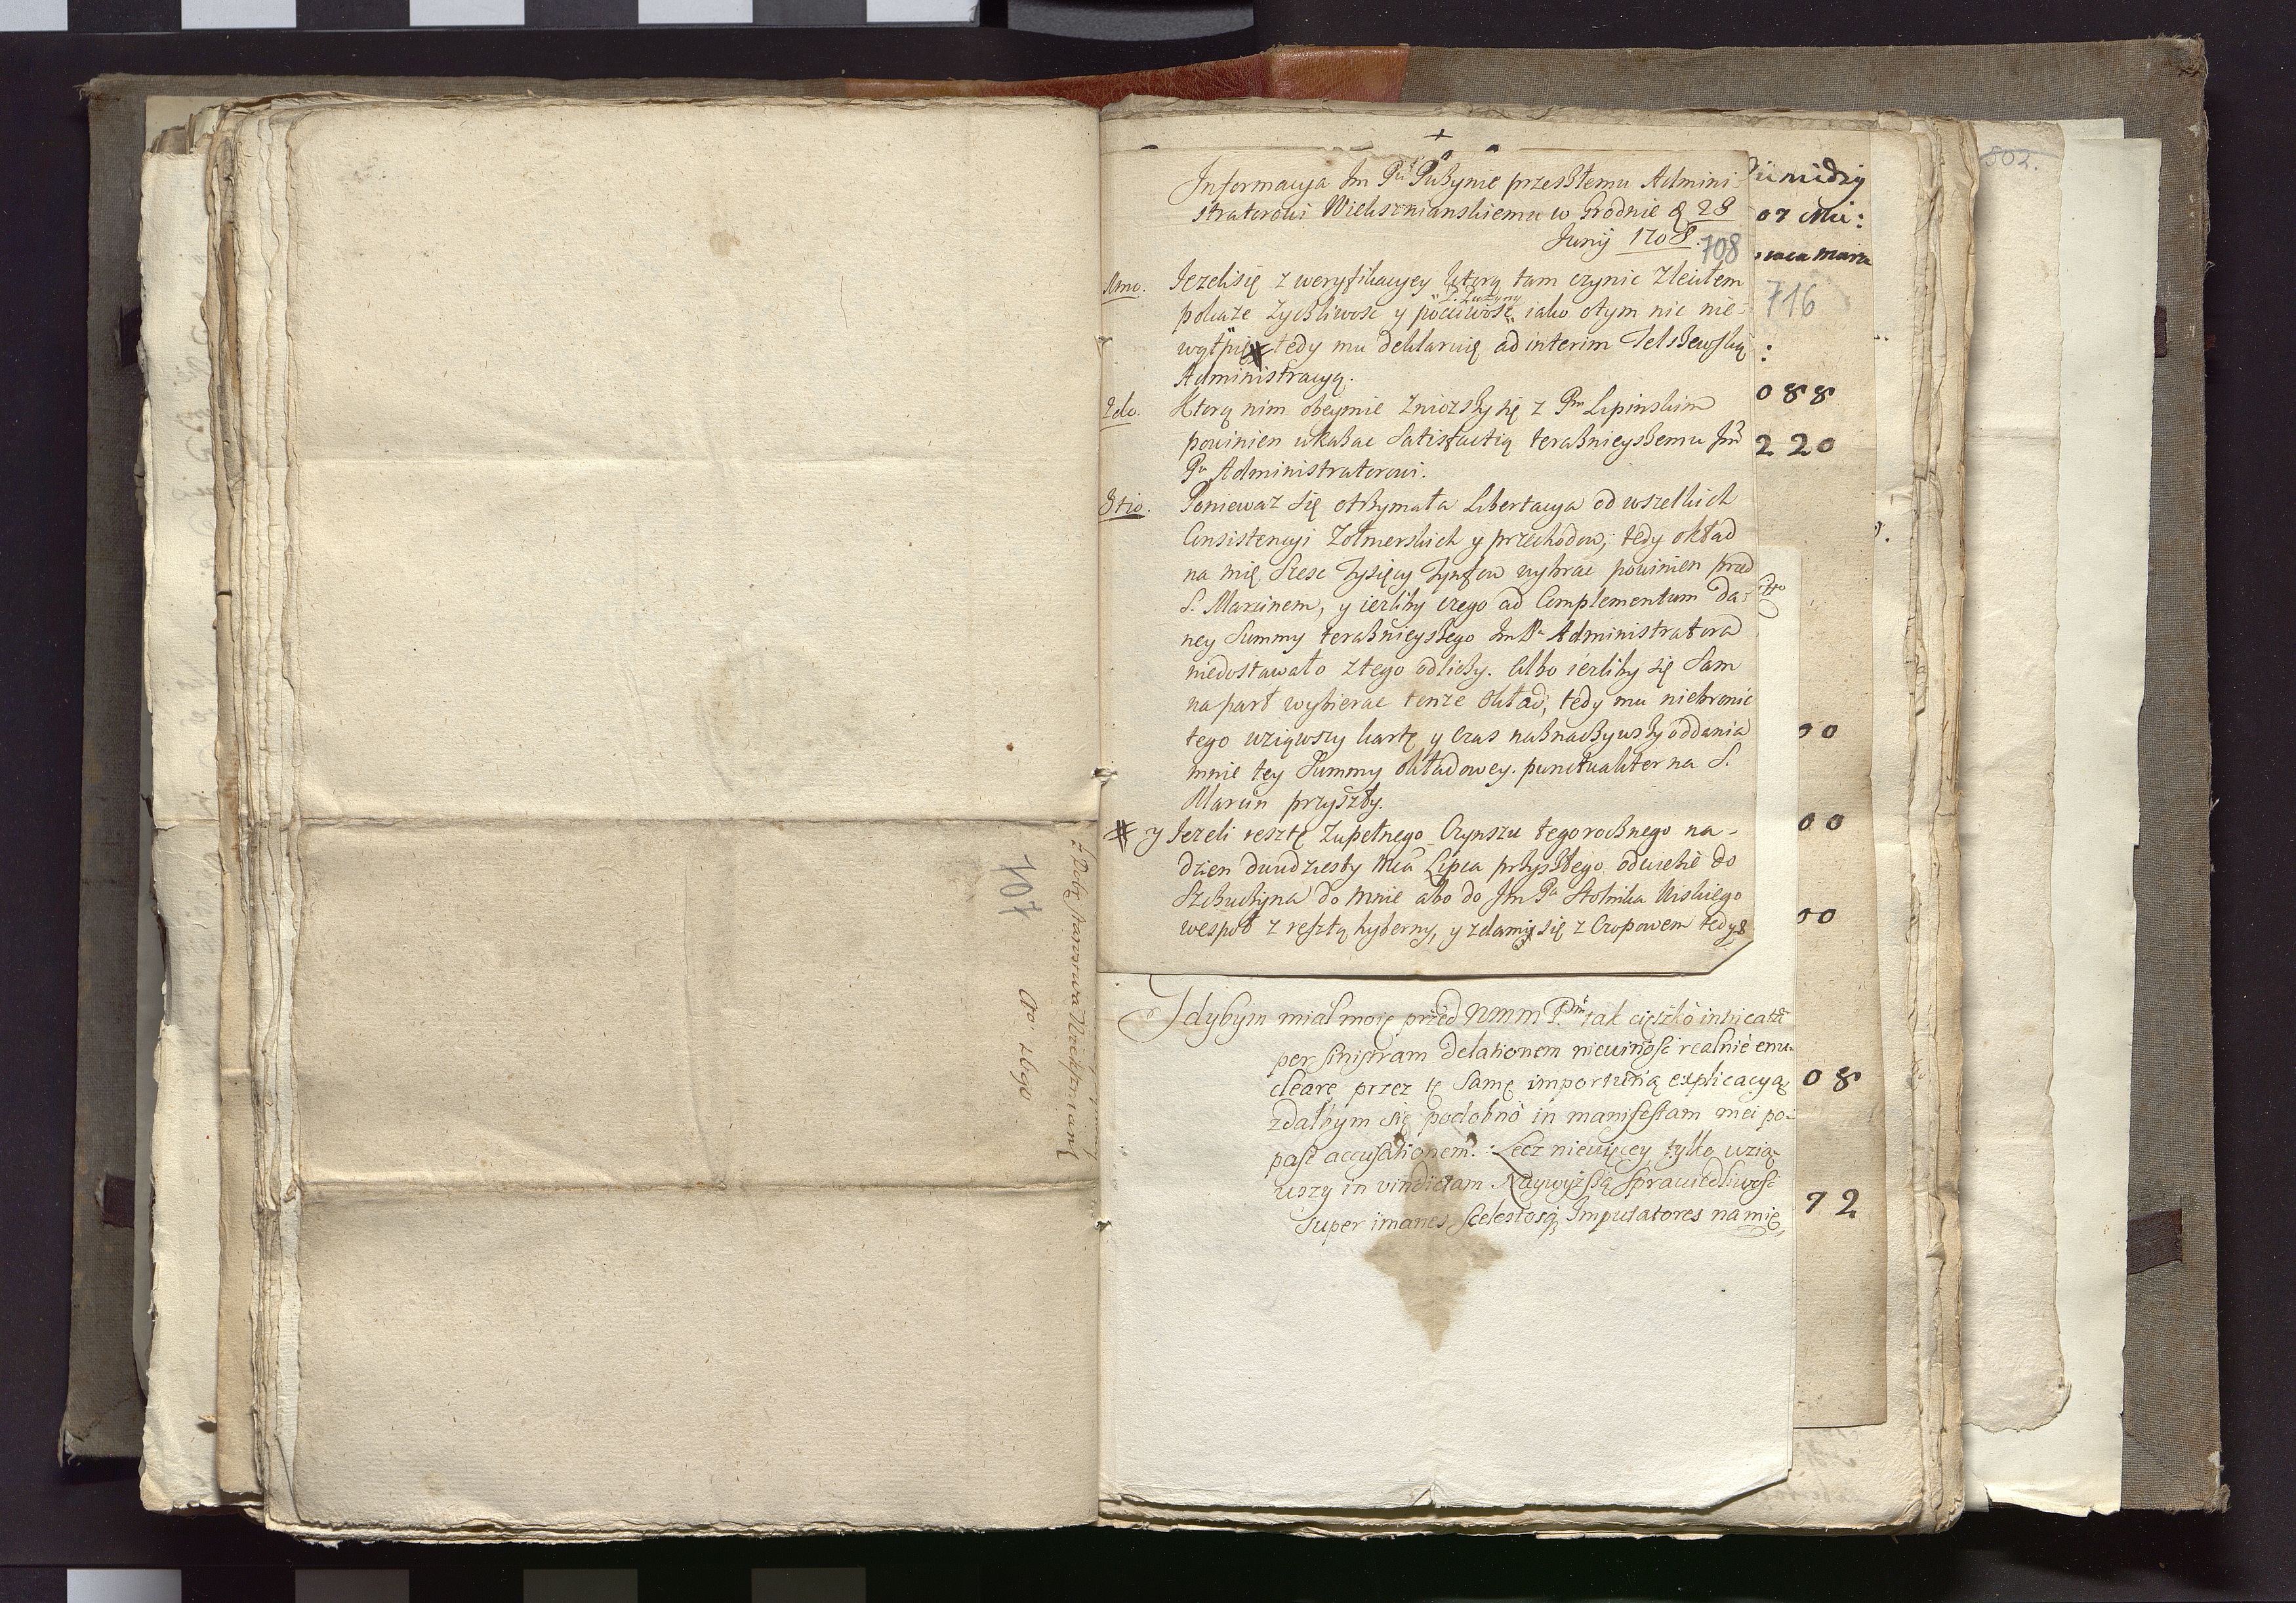 707
z Dobr Starostwa Wieksznianskⁱ
Ao: 1690
+
Informacya Im Pᵘ Puzynie przeszłemu Admini-
stratorowi Wieksznianskiemu w Grodnie d 28
Junij 1708.
708
1mo. Jezeli się z weryfikacyey ktorą tam czynic zleciłem
P. Puzyny
pokaze zyczliwosc y poczciwosc iako otym nic nie-
wątpię # tedy mu deklaruię ad interim Telszewską
Administracyą.
2do. Ktorą nim obeymie zniozszy się z Pᵐ Lipinskim
powinien ukazac Satisfactią teraznieyszemu Im
Pᵘ Administratorowi.
3tio. Poniewaz się otrzymała Libertacya od wszelkich
Consistencyi Zołnierskich y przechodow, tedy okład
na mię szesc tysięcy tynfow wybrac powinien przed
S. Marcinem, y iezliby czego ad Complementum da-
ney Summy teraznieyszego Im Pᵃ Administratora
niedostawało z tego odliczy. Albo iezliby się Sam
naparł wybierac tenze okład, tedy mu niebronic
tego wziąwszy kartę y czas naznaczywszy oddania
mnie tey Summy okładowey. punctualiter na S.
Marcin przyszły.
# y Jezeli resztę zupełnego Czynszu tegorocznego na-
dzien dwudziesty Mca Lipca przyszłego odwiezie do
Szczuczyna do mnie abo do Im Pᵃ Stolnika Wiskiego
wespoł z resztą hyberny, y zdamy się z Czopowem tedy &
Gdybym miał moię przed WMM Pᵐ tak cięszko intricatā
per sinistram delationem niewinosc realnie enu-
cleare przez tę samę importuną explicacyą
zdałbym się podobno in manifestam mei po-
pasc accusationem. Lecz niewięcey tylko wzią-
wszy in vindictam Naywyższą Sprawiedliwosc
super imanes scelestosq Imputatores na mię
07 Mii:
716
:
088
220
00
00
00
08
72
802.